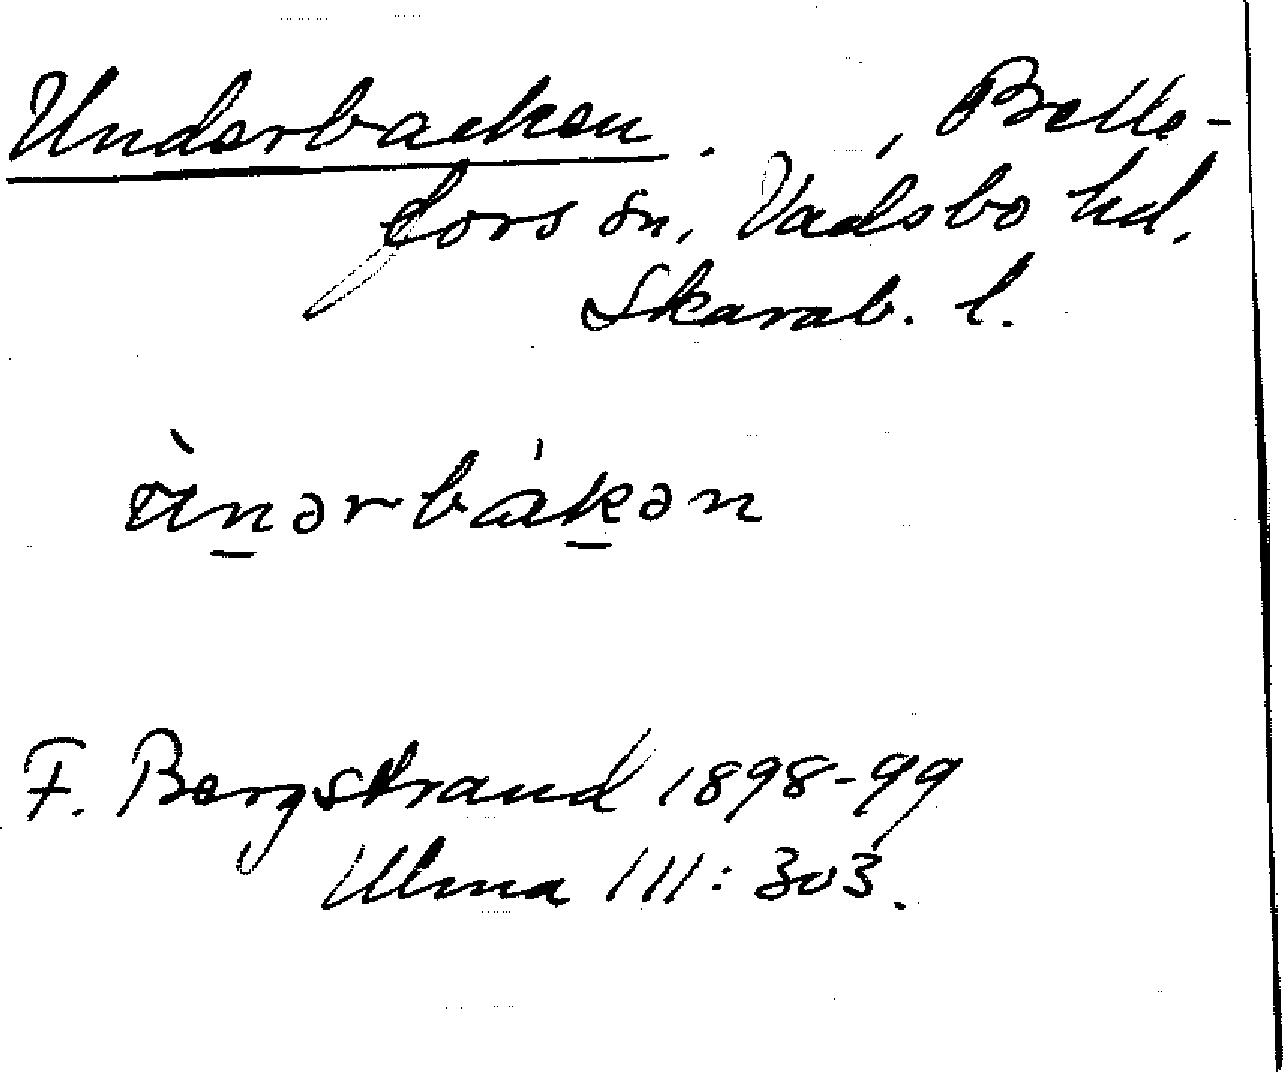 Underbacken. , Belle-
fors sn, Vadsbo hd,
Skarab. l.
ùn̲ərbák̲ən
F. Bergstrand 1898-99
Ulma 111:303.